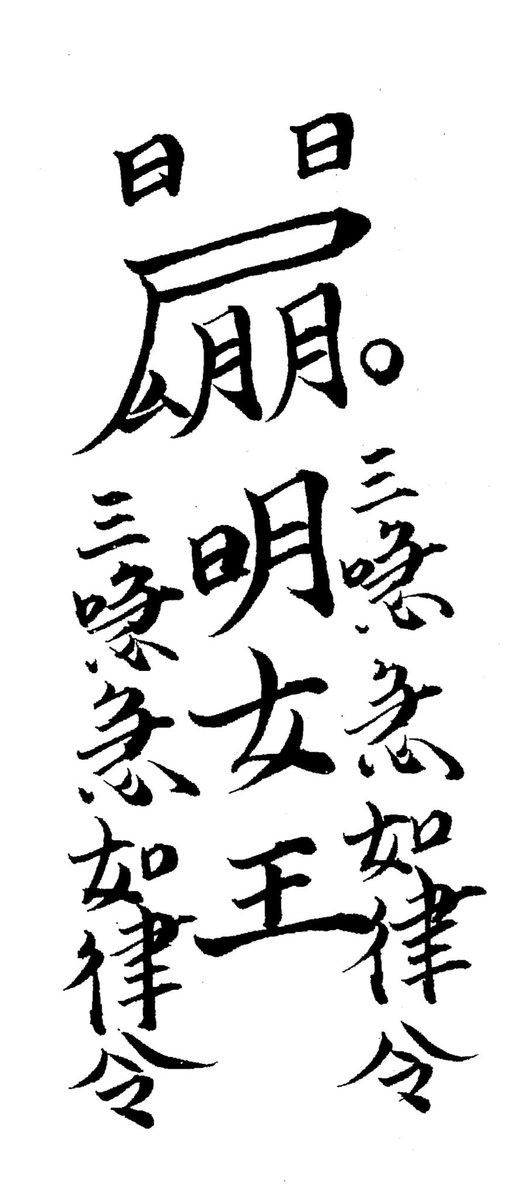 日 日
三喼急如律令
明女王
三喼急如律令